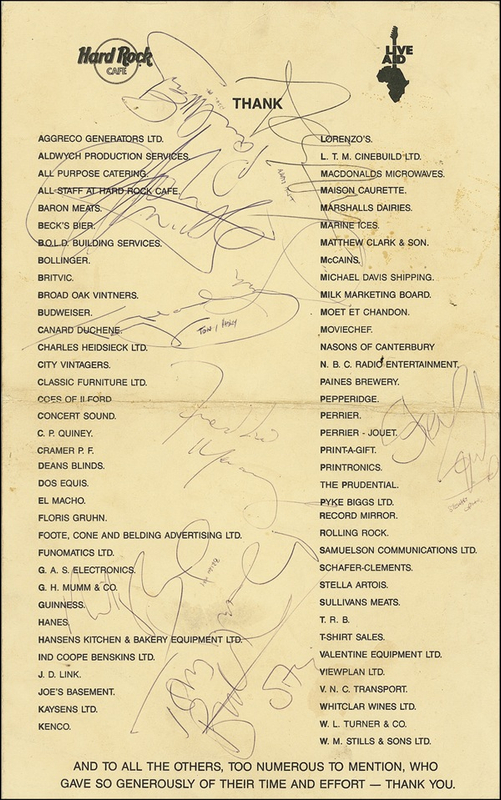 Hard Rock
CAFE
LIVE
AID
THANK
AGGRECO GENERATORS LTD.
ALDWYCH PRODUCTION SERVICES
ALL PURPOSE CATERING.
ALL STAFF AT HARD ROCK CAFE.
BARON MEATS.
BECK'S BIER.
B.O.L.D. BUILDING SERVICES.
BOLLINGER.
BRITVIC.
BROAD OAK VINTNERS.
BUDWEISER.
CANARD DUCHENE.
CHARLES HEIDSIECK LTD.
CITY VINTAGERS.
CLASSIC FURNITURE LTD.
COES OF ILFORD
CONCERT SOUND.
C. P. QUINEY.
CRAMER P. F.
DEANS BLINDS.
DOS EQUIS.
EL MACHO.
FLORIS GRUHN.
FOOTE, CONE AND BELDING ADVERTISING LTD.
FUNOMATICS LTD.
G. A. S. ELECTRONICS.
G. H. MUMM & CO.
GUINNESS.
HANES.
HANSENS KITCHEN & BAKERY EQUIPMENT LTD.
IND COOPE BENSKINS LTD.
J. D. LINK.
JOE'S BASEMENT.
KAYSENS LTD.
KENCO.
LORENZO'S.
L. T. M. CINEBUILD LTD.
MACDONALDS MICROWAVES.
MAISON CAURETTE.
MARSHALLS DAIRIES.
MARINE ICES.
MATTHEW CLARK & SON.
McCAINS.
MICHAEL DAVIS SHIPPING.
MILK MARKETING BOARD.
MOET ET CHANDON.
MOVIECHEF.
NASONS OF CANTERBURY
N. B. C. RADIO ENTERTAINMENT.
PAINES BREWERY.
PEPPERIDGE.
PERRIER.
PERRIER - JOUET.
PRINT-A-GIFT.
PRINTRONICS.
THE PRUDENTIAL.
PYKE BIGGS LTD.
RECORD MIRROR.
ROLLING ROCK.
SAMUELSON COMMUNICATIONS LTD.
SCHAFER-CLEMENTS.
STELLA ARTOIS.
SULLIVANS MEATS.
T. R. B.
T-SHIRT SALES.
VALENTINE EQUIPMENT LTD.
VIEWPLAN LTD.
V. N. C. TRANSPORT.
WHITCLAR WINES LTD.
W. L. TURNER & CO.
W. M. STILLS & SONS LTD.
Freddie
Mercury
Sting
AND TO ALL THE OTHERS, TOO NUMEROUS TO MENTION, WHO
GAVE SO GENEROUSLY OF THEIR TIME AND EFFORT — THANK YOU.